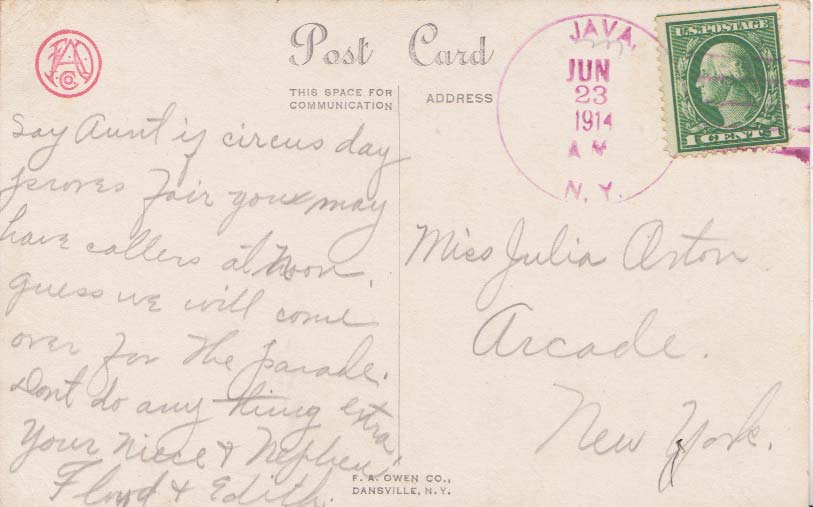 Post Card
THIS SPACE FOR
COMMUNICATION
ADDRESS
JAVA,
JUN
23
1914
A M
N.Y.
U.S. POSTAGE
1 CENT 1
Say Aunt if circus day
proves fair you may
have callers at noon.
guess we will come
over for the parade.
Dont do any thing extra.
Your Niece & Nephew
Floyd & Edith.
Miss Julia Orton
Arcade.
New York.
F. A. OWEN CO.,
DANSVILLE, N.Y.